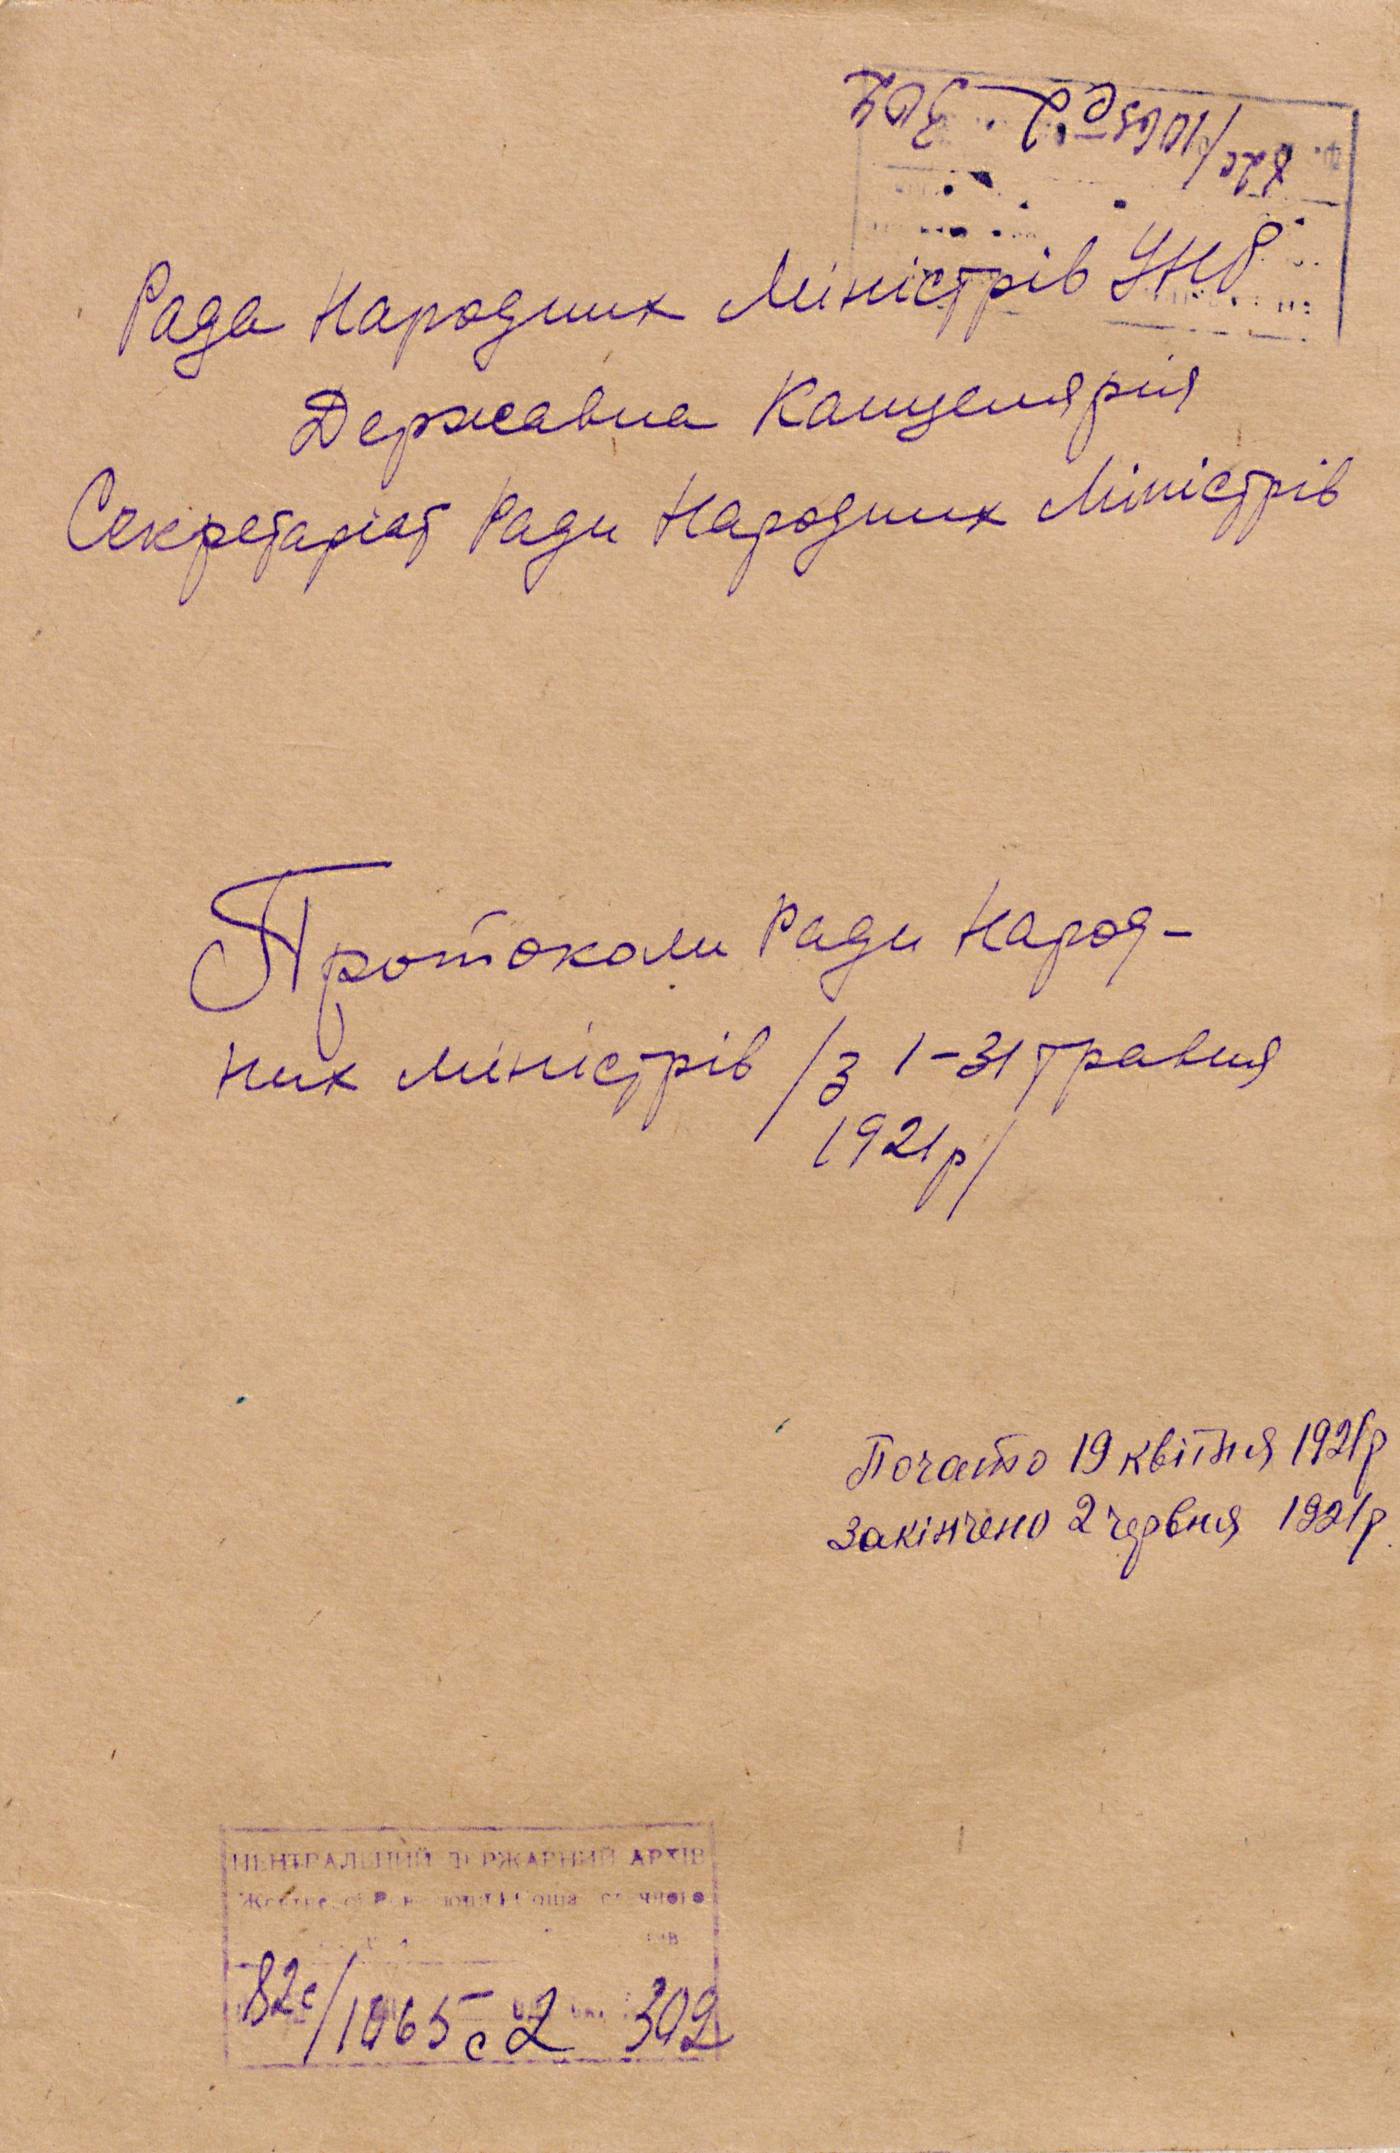 82с/1065с 2 302
Рада Народних Міністрів УНР
Державна Канцелярія
Секретаріат Ради Народних Міністрів
Протоколи Ради Народ-
них Міністрів /з 1-31 травня
1921р/
Почато 19 квітня 1921р
Закінчено 2 червня 1921р.
ЦЕНТРАЛЬНИЙ ДЕРЖАВНИЙ АРХІВ
82с/1065с 2 302